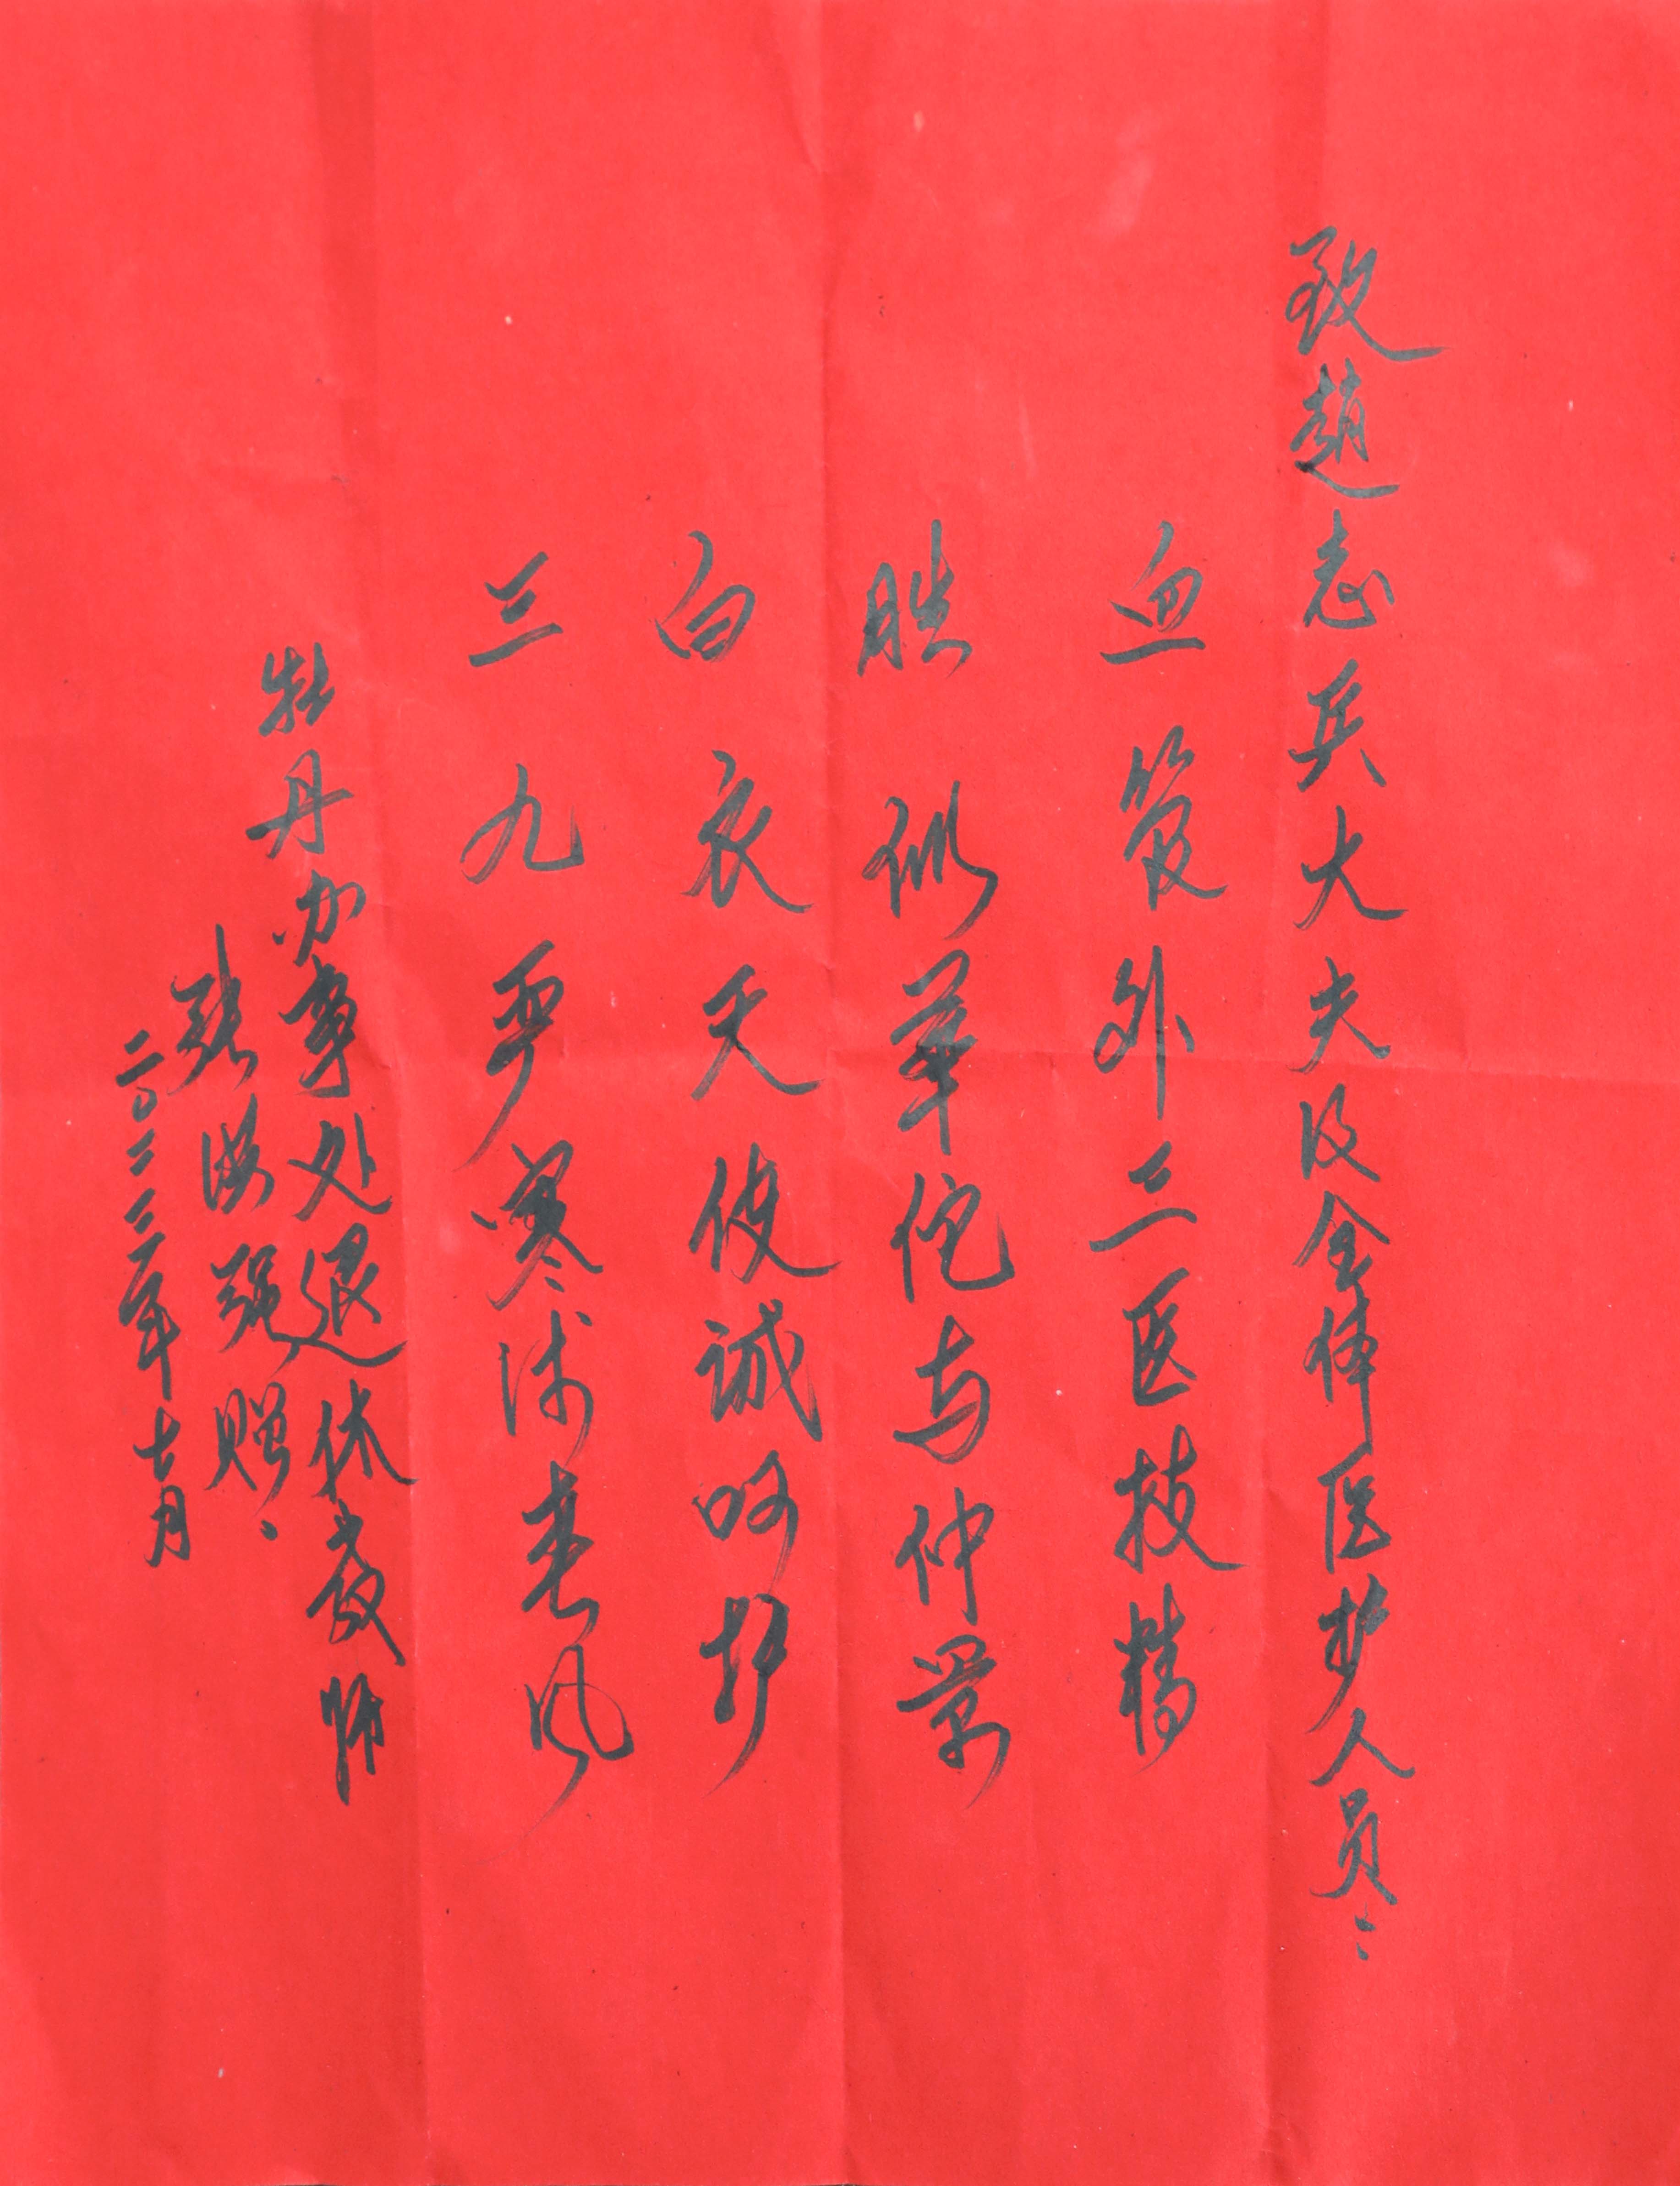 致趙志兵大夫及全体医护人员:
血管外二医技精
胜似華佗与仲景
白衣天使诚呵护
三九严寒沐春风
牡丹办事处退休教师
张海强赠、
二0二三年七月